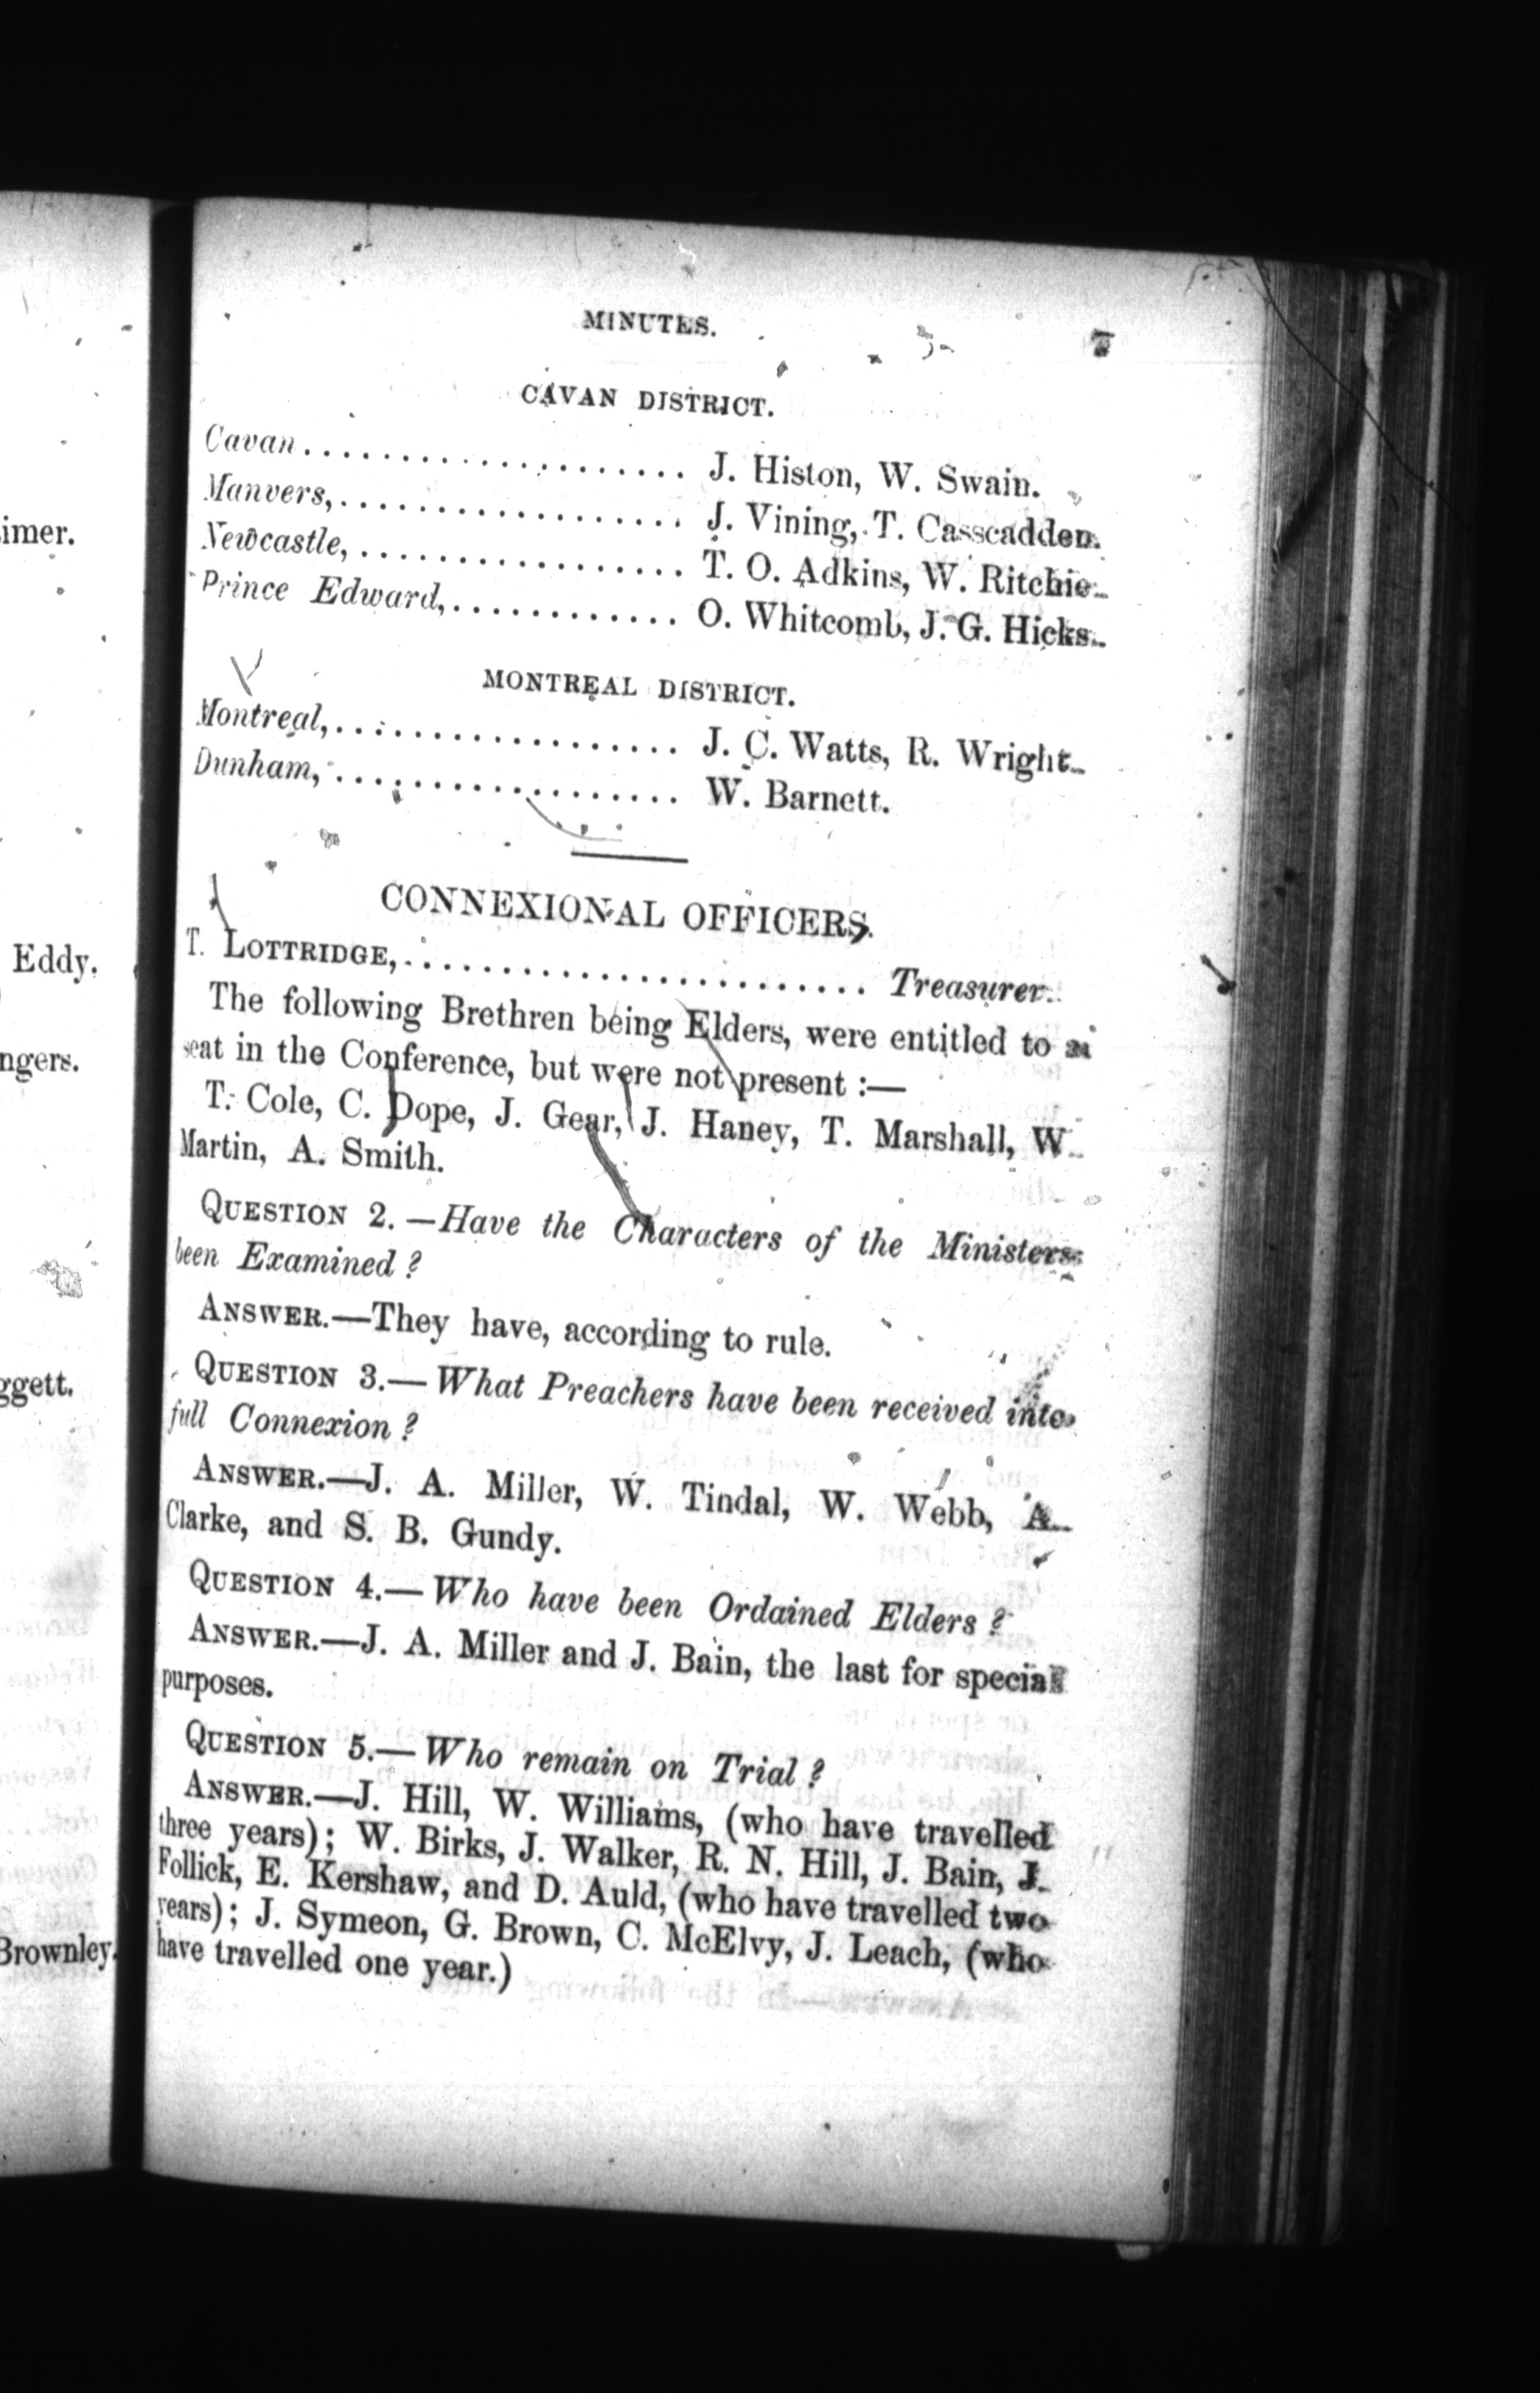 MINUTES. 7
CAVAN DISTRICT.
Cavan .................... J. Histon, W. Swain.
Manvers, .................. J. Vining, T. Casscadden.
Newcastle, ................. T. O. Adkins, W. Ritchie.
Prince Edward, ............ O. Whitcomb, J. G. Hicks.
MONTREAL DISTRICT.
Montreal, .................. J. C. Watts, R. Wright.
Dunham, .................. W. Barnett.
CONNEXIONAL OFFICERS.
T. LOTTRIDGE, ........................ Treasurer.
The following Brethren being Elders, were entitled to a
seat in the Conference, but were not present :—
T. Cole, C. Dope, J. Gear, J. Haney, T. Marshall, W.
Martin, A. Smith.
QUESTION 2.—Have the Characters of the Ministers
been Examined ?
ANSWER.—They have, according to rule.
QUESTION 3.—What Preachers have been received into
full Connexion ?
ANSWER.—J. A. Miller, W. Tindal, W. Webb, A.
Clarke, and S. B. Gundy.
QUESTION 4.—Who have been Ordained Elders ?
ANSWER.—J. A. Miller and J. Bain, the last for special
purposes.
QUESTION 5.—Who remain on Trial ?
ANSWER.—J. Hill, W. Williams, (who have travelled
three years); W. Birks, J. Walker, R. N. Hill, J. Bain, J.
Follick, E. Kershaw, and D. Auld, (who have travelled two
years); J. Symeon, G. Brown, C. McElvy, J. Leach, (who
have travelled one year.)
imer.
Eddy.
ngers.
ggett.
Brownley.